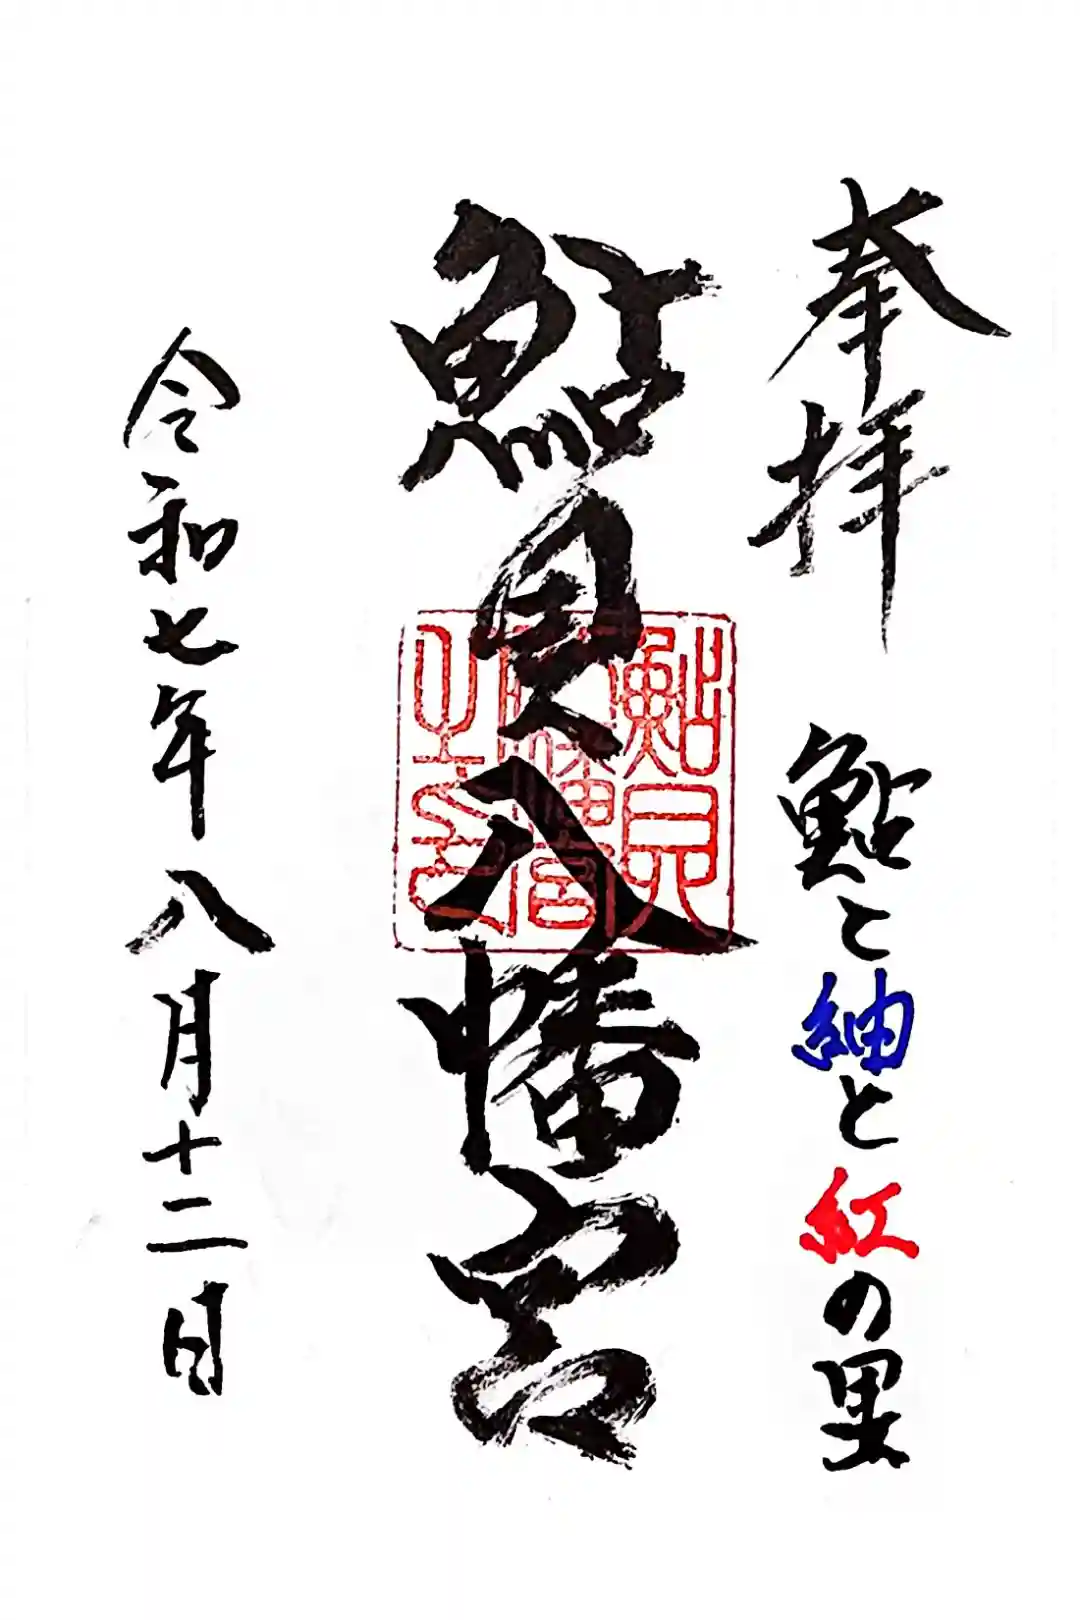 奉拝
鮎と紬と紅の里
鮎貝八幡宮
鮎貝
八幡宮
之印
令和七年八月十二日